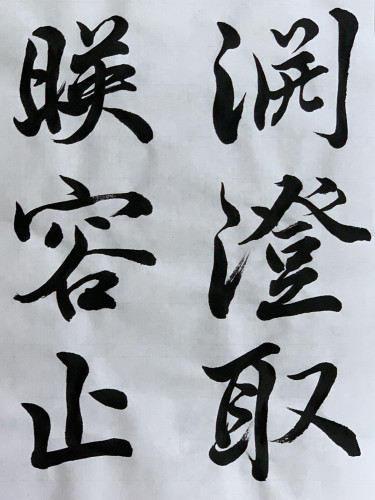 渊澄取
暎容止